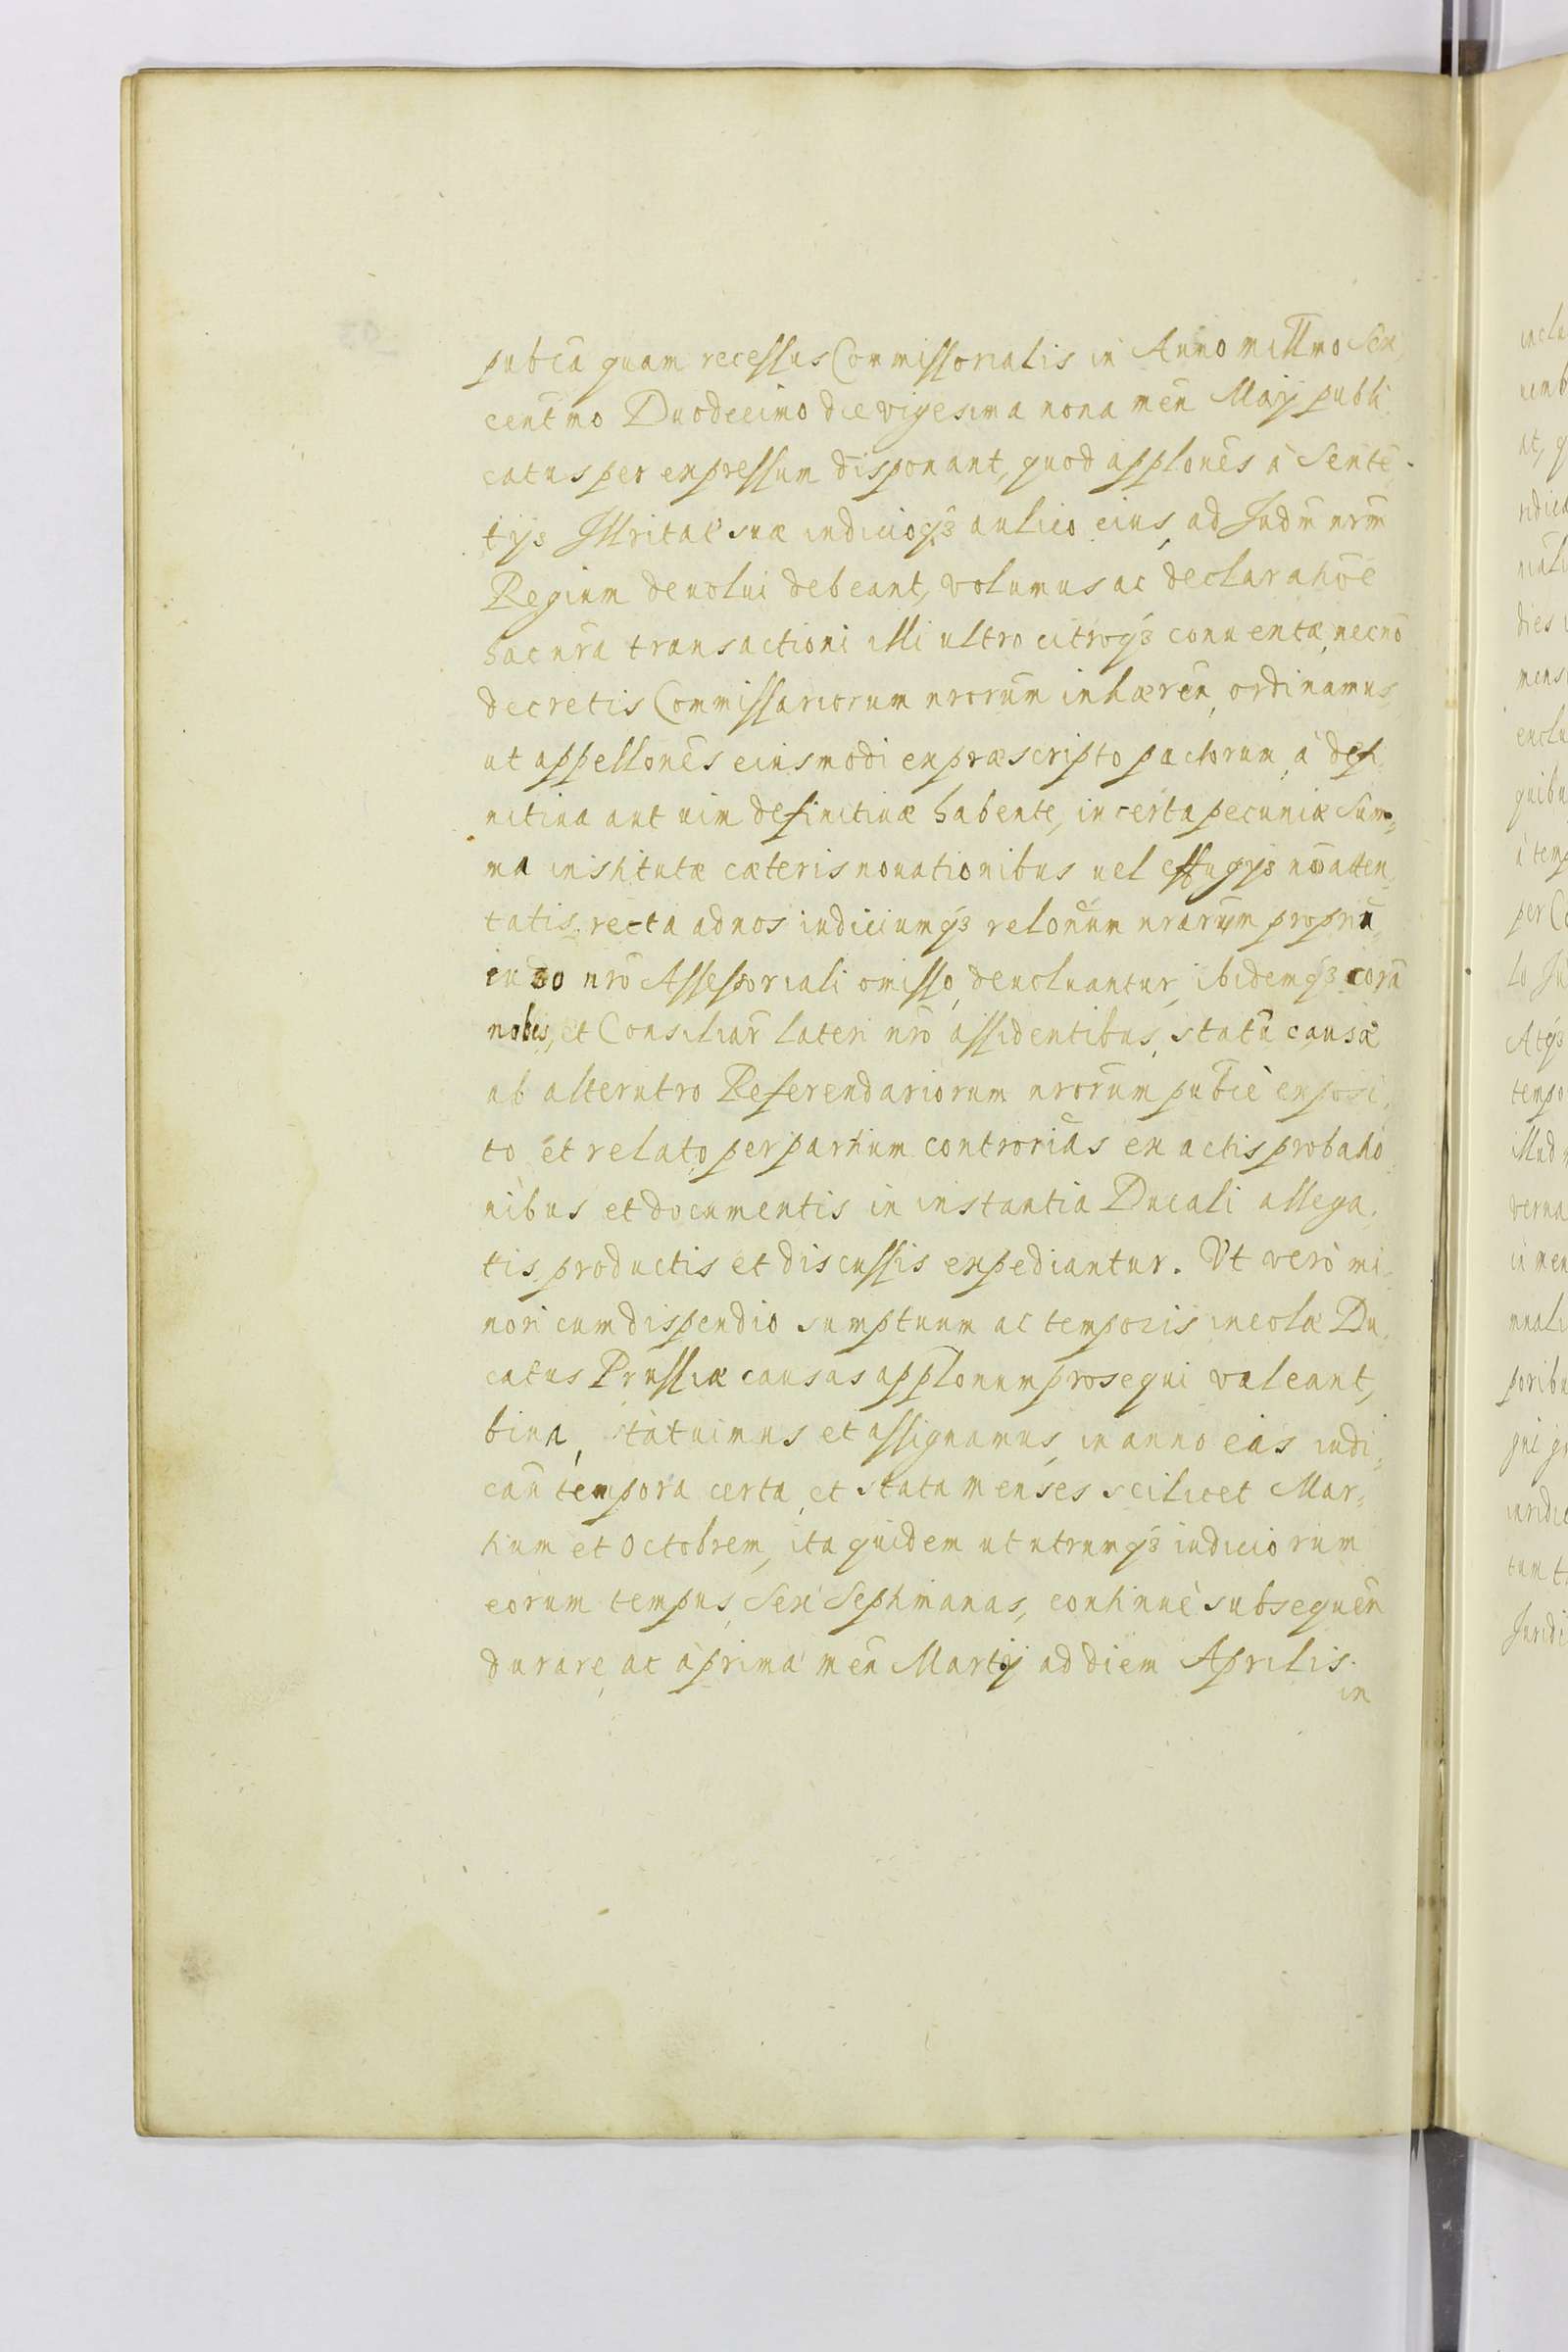 pubca quam recessus Commissorialis in Anno millmo Sex
centmo Duodecimo die vigesima nona men Maij publi
catus per expressum disponant, quod applones à Sente
tijs Illritat̃ suæ iudicioq3 aulico eius, ad Judm nrm
Regium deuolui debeant, volumus ac declaratiõe
hac nra transactioni illi ultro citroq3 conuentæ, necnõ
decretis Commissariorum nrorum inhæren, ordinamus
ut appellones eiusmodi ex præscripto pactorum, à defi
nitiua aut uim definitiuæ habente, in certa pecuniæ Sum-
ma institutæ cæteris nouationibus uel effugijs nõ atten
tatis. recta ad nos iudiciumq3 relonum nrarum propriũ
iudo nro Assessoriali omisso, deuoluantur, ibidemq3 corã
nobis, et Consiliar̃ lateri nro assidentibus, statũ causæ
ab alterutro Referendariorum nrorum pubcè exposi
to et relato per partium controrias ex actis probatio
nibus et documentis in instantia Ducali allega
tis productis et discussis expediantur. Vt verò mi
nori cum dispendio sumptuum ac temporis incolæ Du
catus Prussiæ causas applonum prosequi valeant,
bina, statuimus et assignamus, in anno eas iudi
can̄ tempora certa, et stata menses scilicet Mar-
tium et Octobrem, ita quidem ut utrumq3 iudiciorum
eorum tempus, Sex Septimanas, continuè subsequen̄
durare, ac à prima men̄ Martij ad diem Aprilis
in